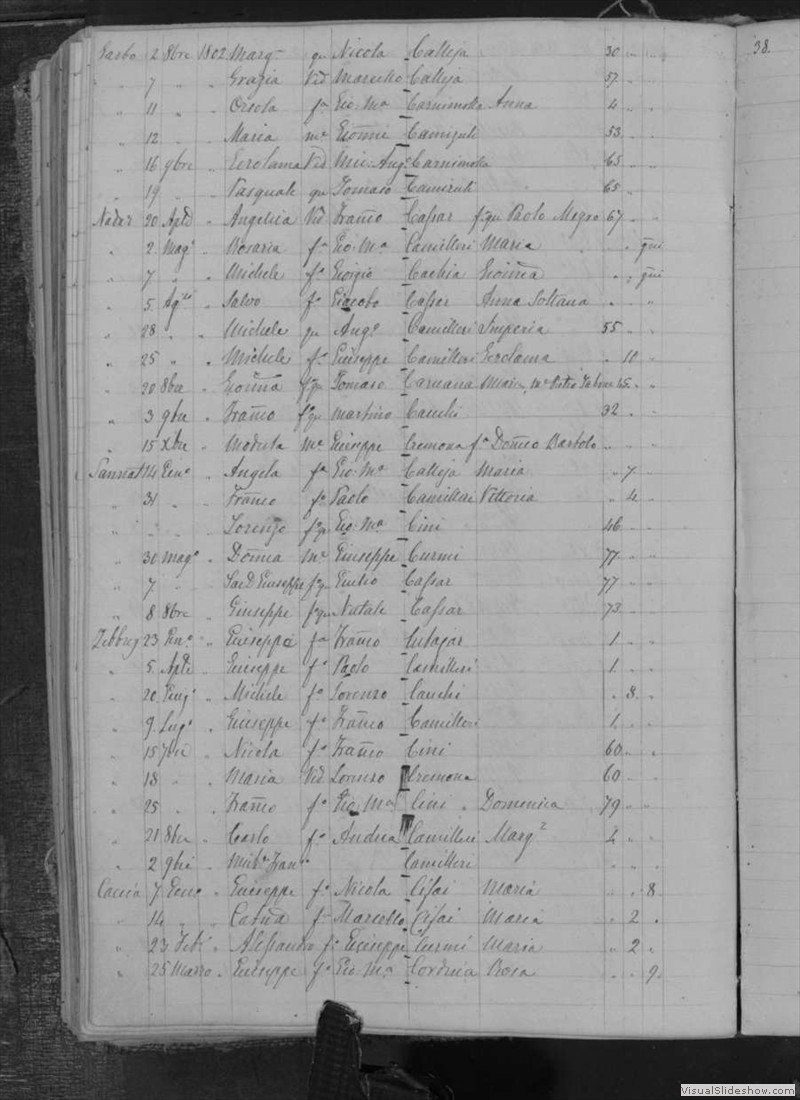 Garbo 2 8bre 1802 Marga qu Nicola Calleja 30 " "
" 7 " " Grazia Vid Marcello Calleja 57 " "
" 11 " " Orsola fa Gio: Ma Carnimolla Anna 4 " "
" 12 " " Maria me Gionni 53 " "
" 16 9bre " Gerolama Vid Mic: Ango Carnimolla 65 " "
" 19 " " Pasquale qu Tomaso 65 " "
Nadur 20 Aple " Angelica Vid Franco Cassar f qu Paolo 67 " "
" 2 Mago " Rosaria fa Gio Ma Camilleri Maria " " gni
" 7 " " Michele fo Giorgio Cachia Gionna " " gni
" 5 Agto " Salvo fo Giacobo Casser Anna Soltana " "
" 28 " " Michele qu Ango Camilleri Imperia 55 " "
" 25 " " Michele fo Giuseppe Camilleri Gerolama " 10 "
" 20 8bre " Gionna f qu Tomaso Caruana Maria, me Pietro 45 "
" 3 9bre " Franco f qu Martino Cauchi 32 " "
" 15 Xbre " Modesta me Giuseppe Cremona fa Domco Bartolo " "
Sannat 14 Geno " Angela fa Gio: Ma Calleja Maria " 7 "
" 31 " " Franco fo Paolo Camilleri Vittoria " 4 "
" " " Lorenzo f qu Gio: Ma Cini 46 " "
" 30 Mago " Domca me Giuseppe Curmi 77 " "
" 7 " Sacd Giuseppe f qu Giulio Cassar 77 " "
" 8 8bre " Giuseppe f qu Natale Cassar 73 " "
Zebbug 23 Geno " Giuseppa fa Franco Cutajar 1 " "
" 5 Aple " Giuseppe fo Paolo Camilleri 1 " "
" 20 Giugo " Michele fo Lorenzo Cauchi " 8 "
" 9 Lugo " Giuseppe fo Franco Camilleri 1 " "
" 15 7bre " Nicola fo Franco Cini 60 " "
" 18 " " Maria Vid Lorenzo Cremona 60 " "
" 25 " " Franco fo Gio Ma Cini " Domenica 79 " "
" 21 8bre " Carlo fo Andrea Camilleri Marga 2 " "
" 2 9bre " Camilleri " "
Caccia 7 Geno " Giuseppe fo Nicola Maria " " 8
" 14 " " Catna fa Marcello Maria " 2 "
" 23 Febo " Alessandro fo Giuseppe Curmi Maria " 2 "
" 25 Marzo " Giuseppe fo Gio: Ma Cordina Rosa " " 9
38.
VisualSlideshow.com